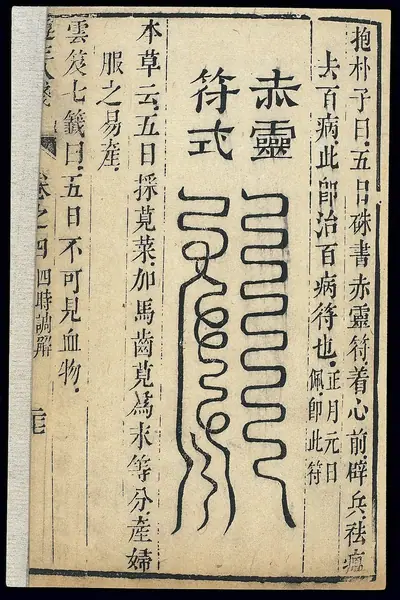 抱朴子曰.五日硃書赤靈符着心前.辟兵.祛瘟.
去百病.此即治百病符也.正月元日
佩即此符
赤靈
符式
本草云.五日採莧菜.加馬齒莧爲末等分.產婦
服之易產.
雲笈七籤曰.五日不可見血物.
卷之四 四時調解